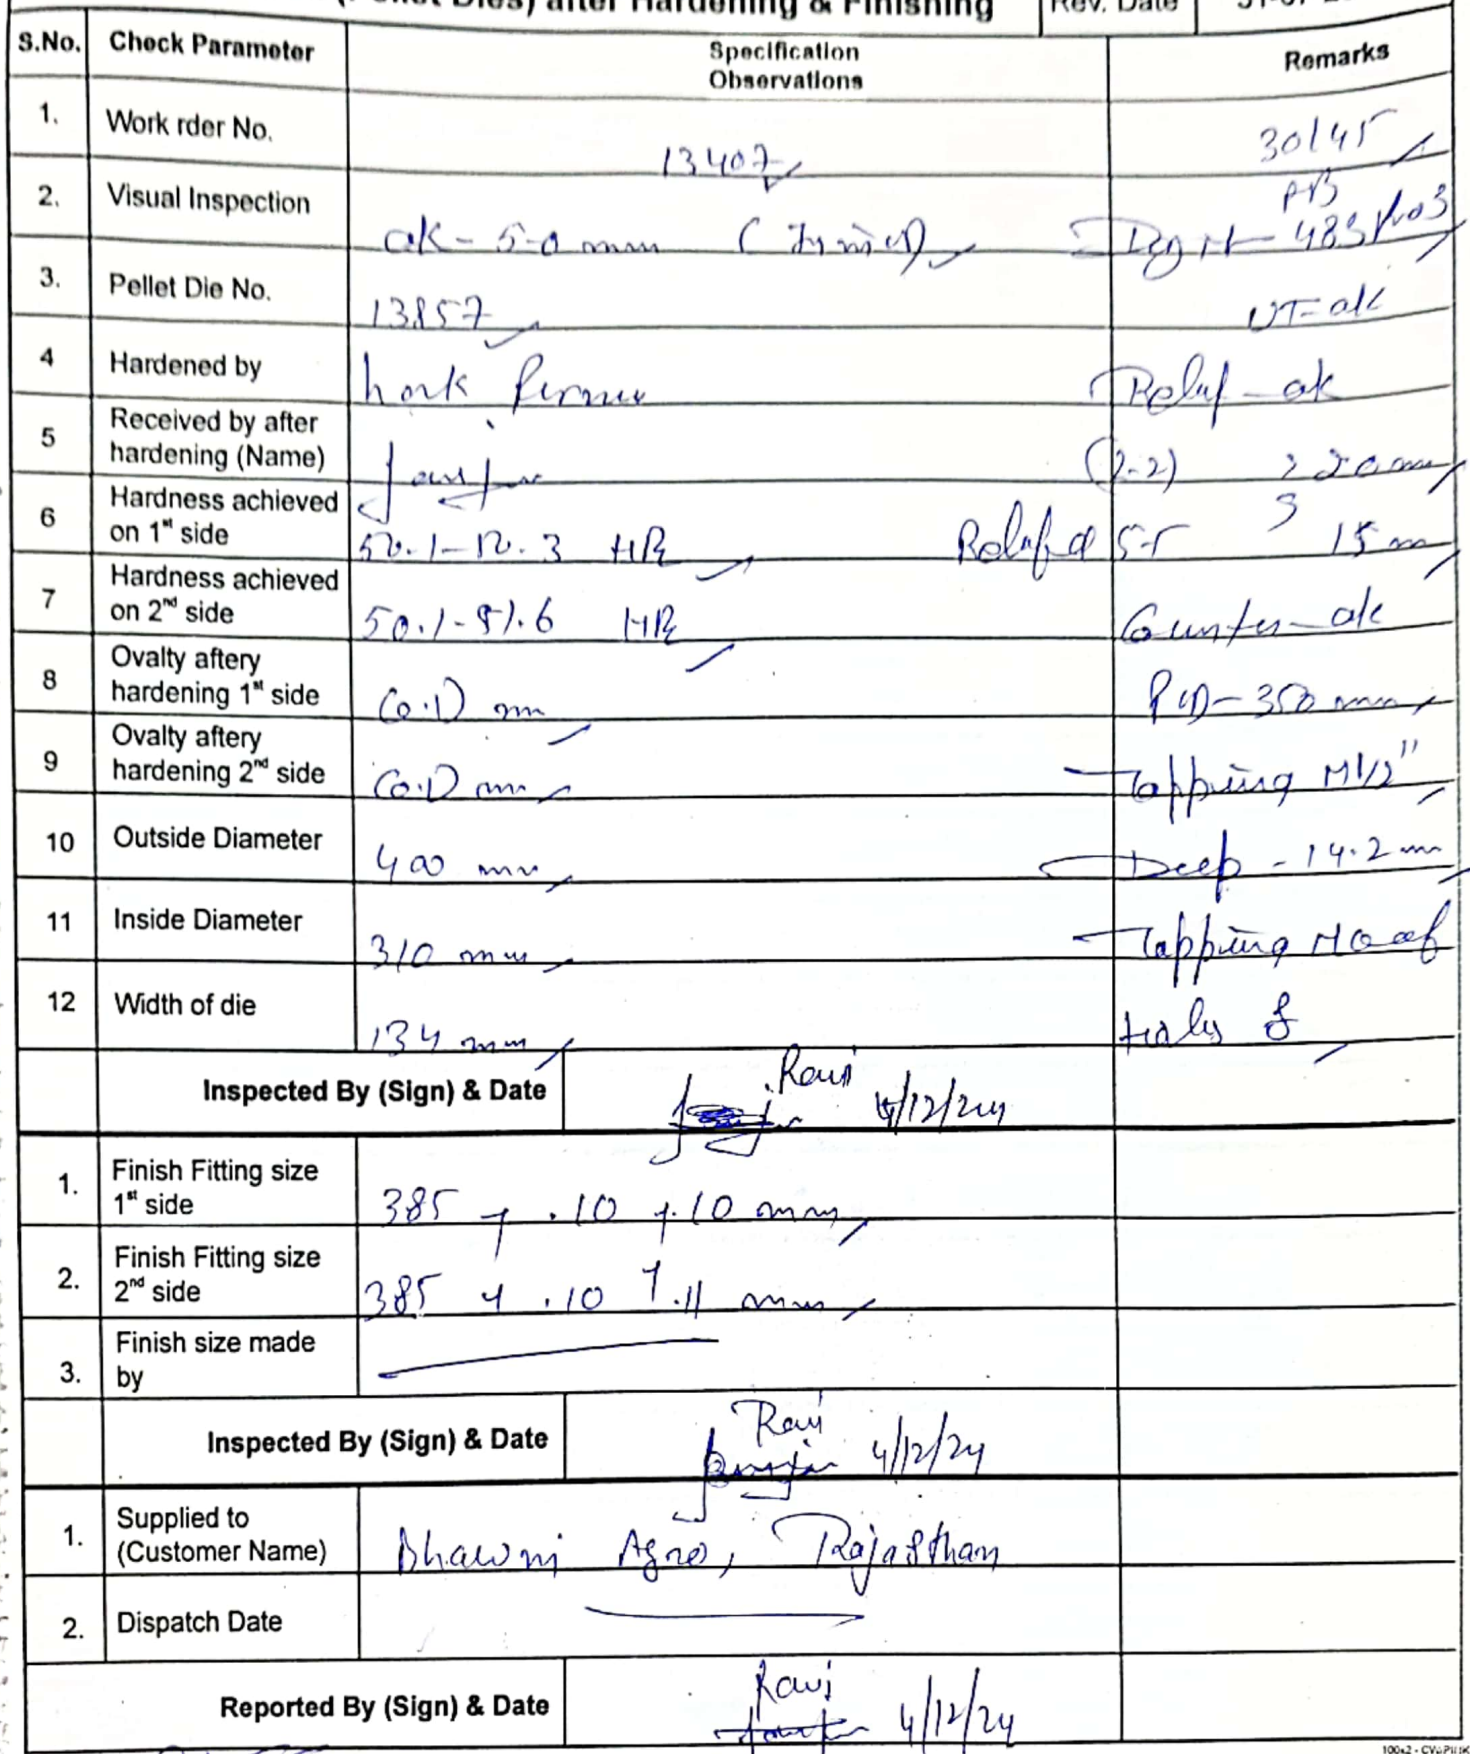 (Pellet Dies) after Hardening & Finishing Rev. Date
S.No. Check Parameter Specification Observations Remarks
1. Work rder No. 13407 30/45
2. Visual Inspection ok - 5.0 mm
3. Pellet Die No. 13857 UT= ok
4 Hardened by Relief - ok
5 Received by after hardening (Name) (2-2)
6 Hardness achieved on 1st side 15 m
7 Hardness achieved on 2nd side 50.1-51.6 Counter - ok
8 Ovalty aftery hardening 1st side PCD- 350 mm
9 Ovalty aftery hardening 2nd side Tapping M1/2"
10 Outside Diameter 400 mm Deep - 14.2 mm
11 Inside Diameter 310 mm Tapping NO of
12 Width of die 134 mm holes 8
Inspected By (Sign) & Date Ravi 4/12/24
1. Finish Fitting size 1st side 385 + .10 +.10 mm
2. Finish Fitting size 2nd side 385 + .10 +.11 mm
3. Finish size made by
Inspected By (Sign) & Date Ravi 4/12/24
1. Supplied to (Customer Name) Bhawni Agro, Rajasthan
2. Dispatch Date
Reported By (Sign) & Date Ravi 4/12/24